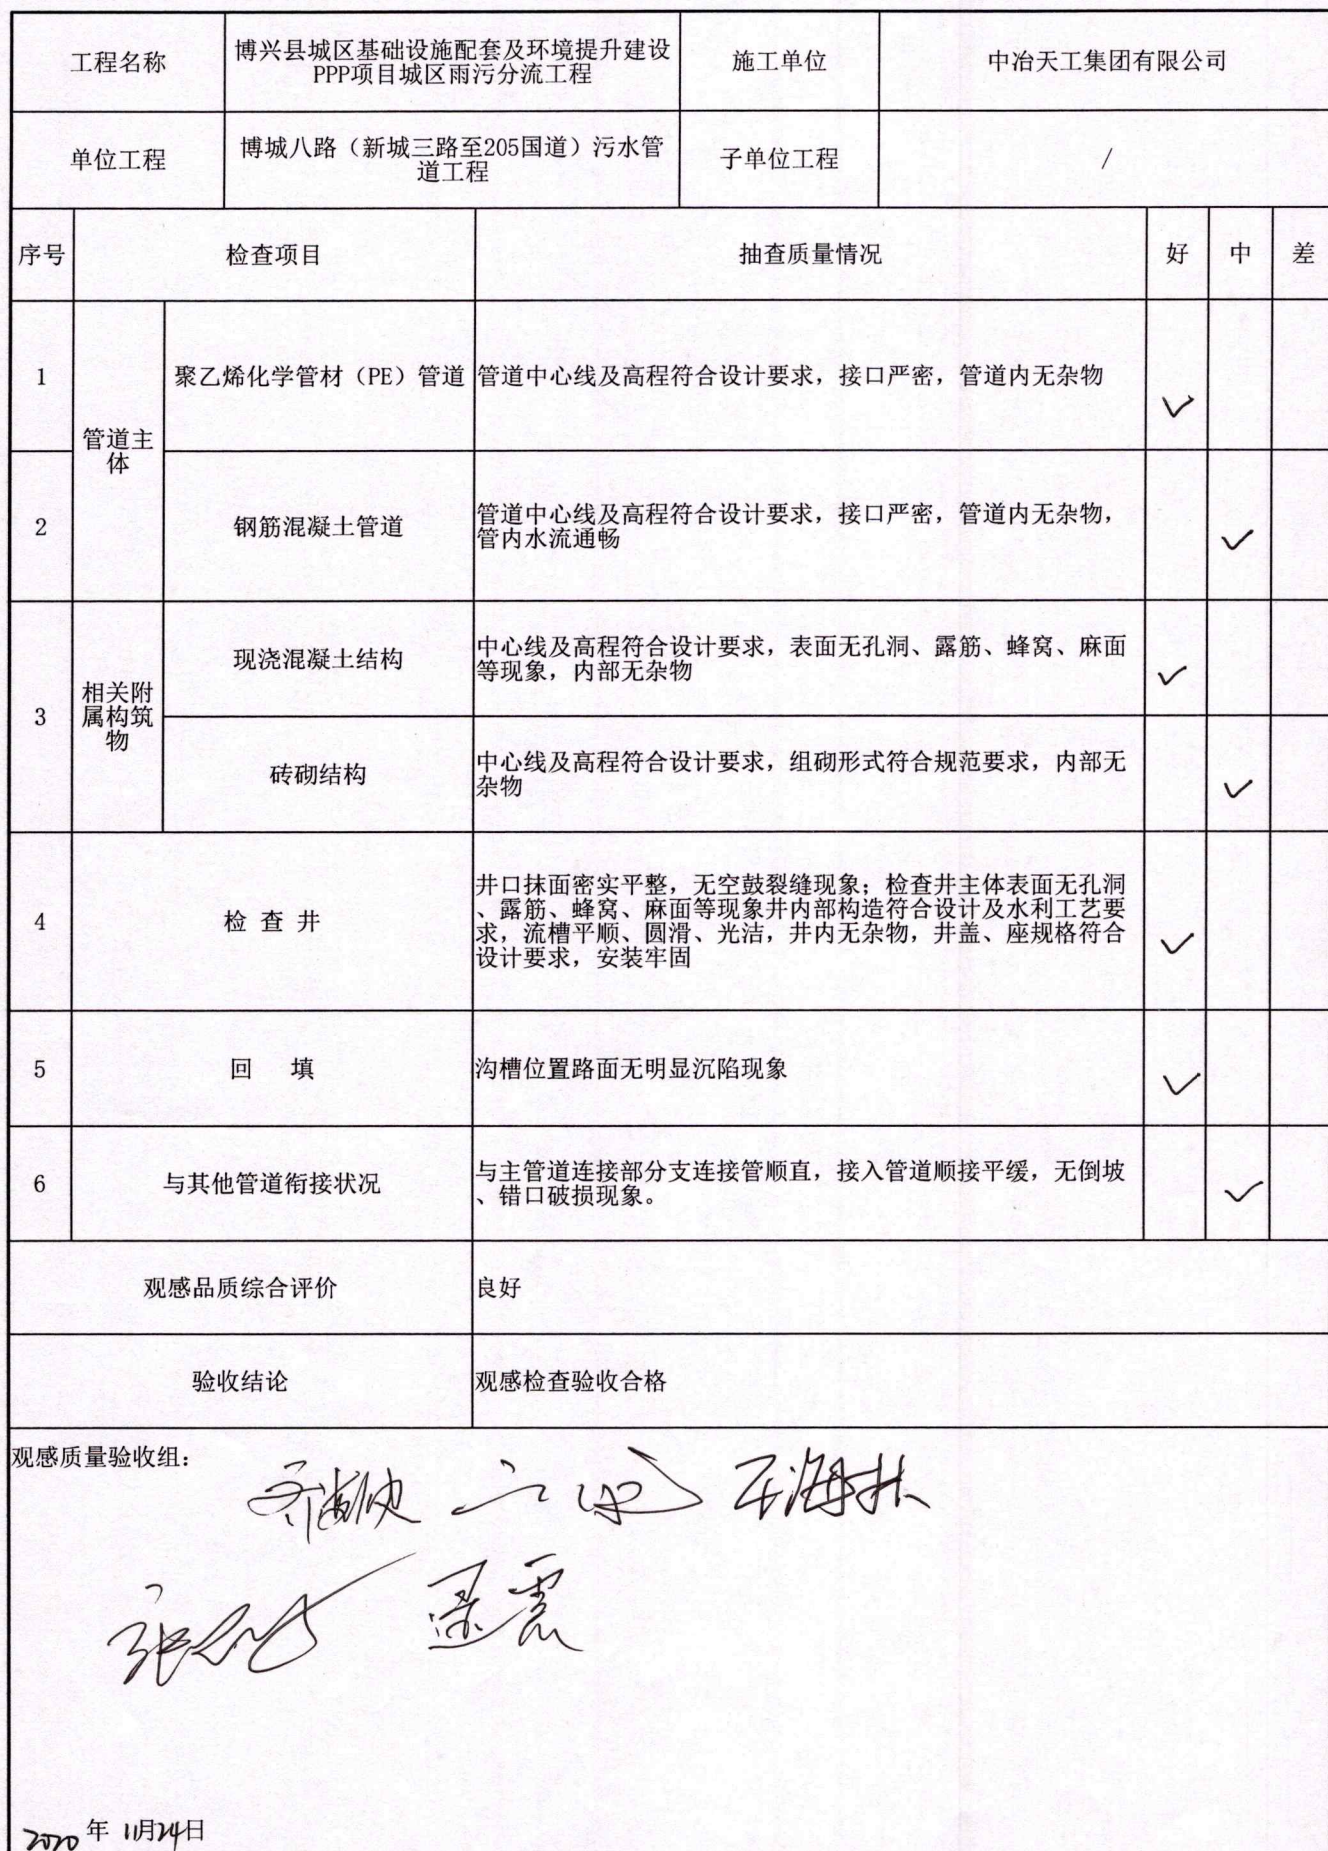 工程名称
博兴县城区基础设施配套及环境提升建设
PPP项目城区雨污分流工程
施工单位
中冶天工集团有限公司
单位工程
博城八路（新城三路至205国道）污水管
道工程
子单位工程
/
序号
检查项目
抽查质量情况
好
中
差
1
管道主
体
聚乙烯化学管材（PE）管道
管道中心线及高程符合设计要求，接口严密，管道内无杂物
✓
2
钢筋混凝土管道
管道中心线及高程符合设计要求，接口严密，管道内无杂物，
管内水流通畅
✓
3
相关附
属构筑
物
现浇混凝土结构
中心线及高程符合设计要求，表面无孔洞、露筋、蜂窝、麻面
等现象，内部无杂物
✓
砖砌结构
中心线及高程符合设计要求，组砌形式符合规范要求，内部无
杂物
✓
4
检 查 井
井口抹面密实平整，无空鼓裂缝现象；检查井主体表面无孔洞
、露筋、蜂窝、麻面等现象井内部构造符合设计及水利工艺要
求，流槽平顺、圆滑、光洁，井内无杂物，井盖、座规格符合
设计要求，安装牢固
✓
5
回 填
沟槽位置路面无明显沉陷现象
✓
6
与其他管道衔接状况
与主管道连接部分支连接管顺直，接入管道顺接平缓，无倒坡
、错口破损现象。
✓
观感品质综合评价
良好
验收结论
观感检查验收合格
观感质量验收组：
2020 年 11月24日